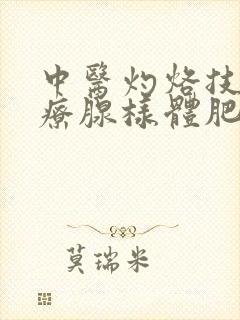 中醫灼烙技
療腺樣體肥
莫瑞米